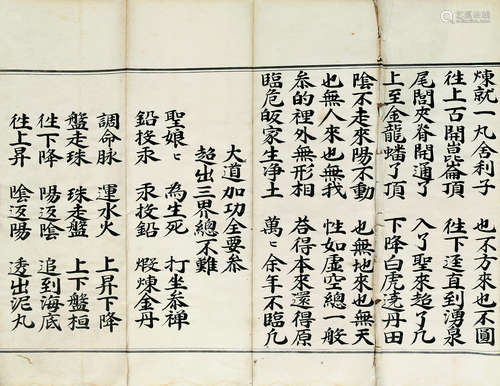 煉就一丸舍利子　也不方來也不圓
徃上古開崑崙頂　徃下逕直到湧泉
尾閭夾脊開通了　入了聖來超了凢
上至金龍蟠了頂　下降白虎遶丹田
陰不走來陽不動　也無地來也無天
也無人來也無我　性如虚空總一般
叅的裡外無形相　荅得本來還得原
臨危皈家生净土　萬〻余年不臨凢
大道加功全要叅
超出三界總不難
聖娘〻　為生死　打坐叅禪
鉛投汞　汞投鉛　煅煉金丹
調命脉　運水火　上昇下降
盤走珠　珠走盤　上下盤桓
徃下降　陽返陰　追到海底
徃上昇　陰返陽　透出泥丸